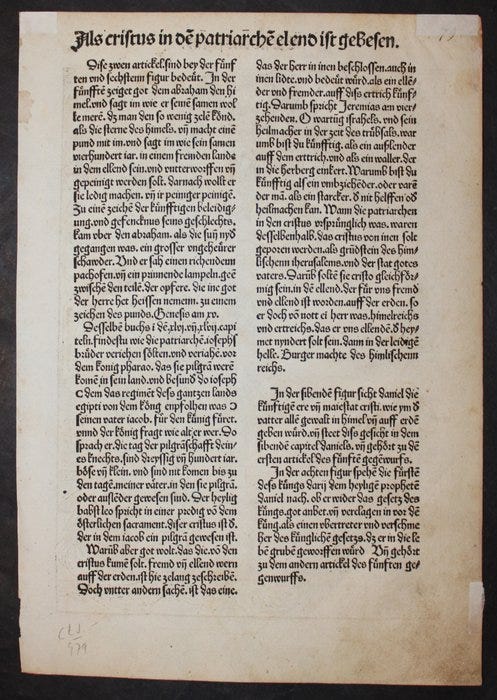 Als cristus in dē patriarchē elend ist gebesen.
Dise zwen artickel, sind bey der fünf
ten vnd sechstenn figur bedeüt. In der
fünfftē zeiget got dem abraham den hi
mel, vnd sagt im wie er seinē samen wol
le merē. dz man den so wenig zelē könd.
als die sterne des himels. vn̄ macht eine
pund mit im. vnd sagt im wie sein samen
vierhundert iar. in einem fremden lande
in dem ellend sein, vnd vntterworffen vn̄
gepeinigt werden solt. darnach wollt er
sie ledig machen. vn̄ ir peiniger peinigē.
Zu einē zeichē der künfftigen beleidig/
ung. vnd gefencknus seines geschlechts.
kam vber den abraham. als die sun̄ nyd
gegangen was. ein grosser ungeheürer
schawder. Vnd er sah einen riechendenn
pachofen. vn̄ ein prinnende lampeln. geē
zwischē den teilē. der opfere. die inc got
der herre het heissen nemenn. zu einem
zeichen des punds. Genesis am xv.
Desselbē buchs i dē .xlvj. vn̄ .xlvij. capi
teln. findestu wie die patriarchē. iosephs
brüder veriehen sölten. vnd veriahē. vor
dem konig pharao. das sie pilgrā werē
komē in sein land. vnd besund do ioseph
C dem das regimēt defs gantzen lands
egipti von dem kōng enpfolhen was Ↄ
seinen vater iacob. für den küng füret.
vnnd der könig fragt wie alt er wer. So
sprach er. die tag der pilgrāschafft dein/
es knechts. sind dreyssig vn̄ hundert iar.
böse vn̄ klein. vnd sind nit komen bis zu
den tagē. meiner väter. in den sie pilgrā.
oder auslēder gewesen sind. Der heylig
babst leo spricht in einer predig vō dem
österlichen sacrament. diser cristus ist d.
der in dem iacob ein pilgrā gewesen ist.
Warūb aber got wolt. das die. vō den
cristus kumē solt. fremd vn̄ ellend wern
auff der erden. ist hie zelang zeschreibē.
Doch vntter andern sachē. ist das eine.
das der herr in inen beschlossen. auch in
inen lidte. vnd bedeüt würd. als ein ellē/
der vnd fremder. auff diss ertrich künf/
tig. Darumb spricht Jeremias am vier/
zehenden. O wartūg israhels. vnd sein
heilmacher in der zeit des trübsals. war
umb bist du künfftig. als ein auslender
auff dem erttrich. vnd als ein waller. der
in die herberg einkert. Warumb bist du
künfftig als ein vmbziehēder. oder varē
der mā. als ein starcker. d nit helffen od
heilmachen kan. Wann die patriarchen
in den cristus vrsprünglich was. waren
desselbenhalb. das cristus von inen solt
geporen werden. als grūdstein des him/
lischenn iherusalems. vnd der stat gotes
vaters. Darūb soltē sie cristo gleichför/
mig sein. in dē ellend. der für vns fremd
vnd ellend ist worden. auff der erden. so
er doch vō nott ei herr was. himelreichs
vnd ertreichs. das er vns ellendē. d hey/
met nyndert solt sein. dann in der leidigē
helle. Burger machte des himlischenn
reichs.
In der sibendē figur sicht daniel die
künftigē ere vn̄ maiestat cristi. wie ym d
vatter allē gewalt in himel vn̄ auff erdē
geben würd. vn̄ steet diss gesicht in dem
sibendē capitel danielis. vn̄ gehört zu dē
ersten artickel des fünftē gegēwurfs.
In der achten figur spehē die fürstē
defs küngs darij dem heyligē prophetē
daniel nach. ob er wider das gesetz des
küngs. got anbet. vn̄ verclagen in vor dē
küng. als einen vbertreter vnd verschme
her des künglichē gesetzs. dz er in die le
bē grubē geworffen würd Vn̄ gehört
zu dem andern artickel des fünften ge/
genwurffs.